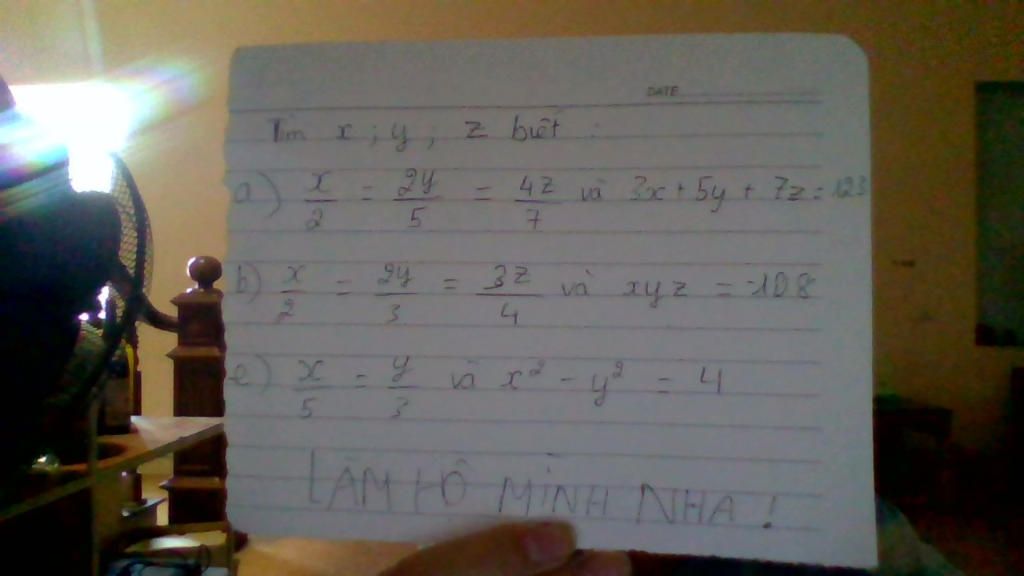 DATE
Tìm x ; y ; z biết :
a) x/2 = 2y/5 = 4z/7 và 3x + 5y + 7z = 123
b) x/2 = 2y/3 = 3z/4 và xyz = -108
c) x/5 = y/3 và x² - y² = 4
LÀM HỘ MÌNH NHA !